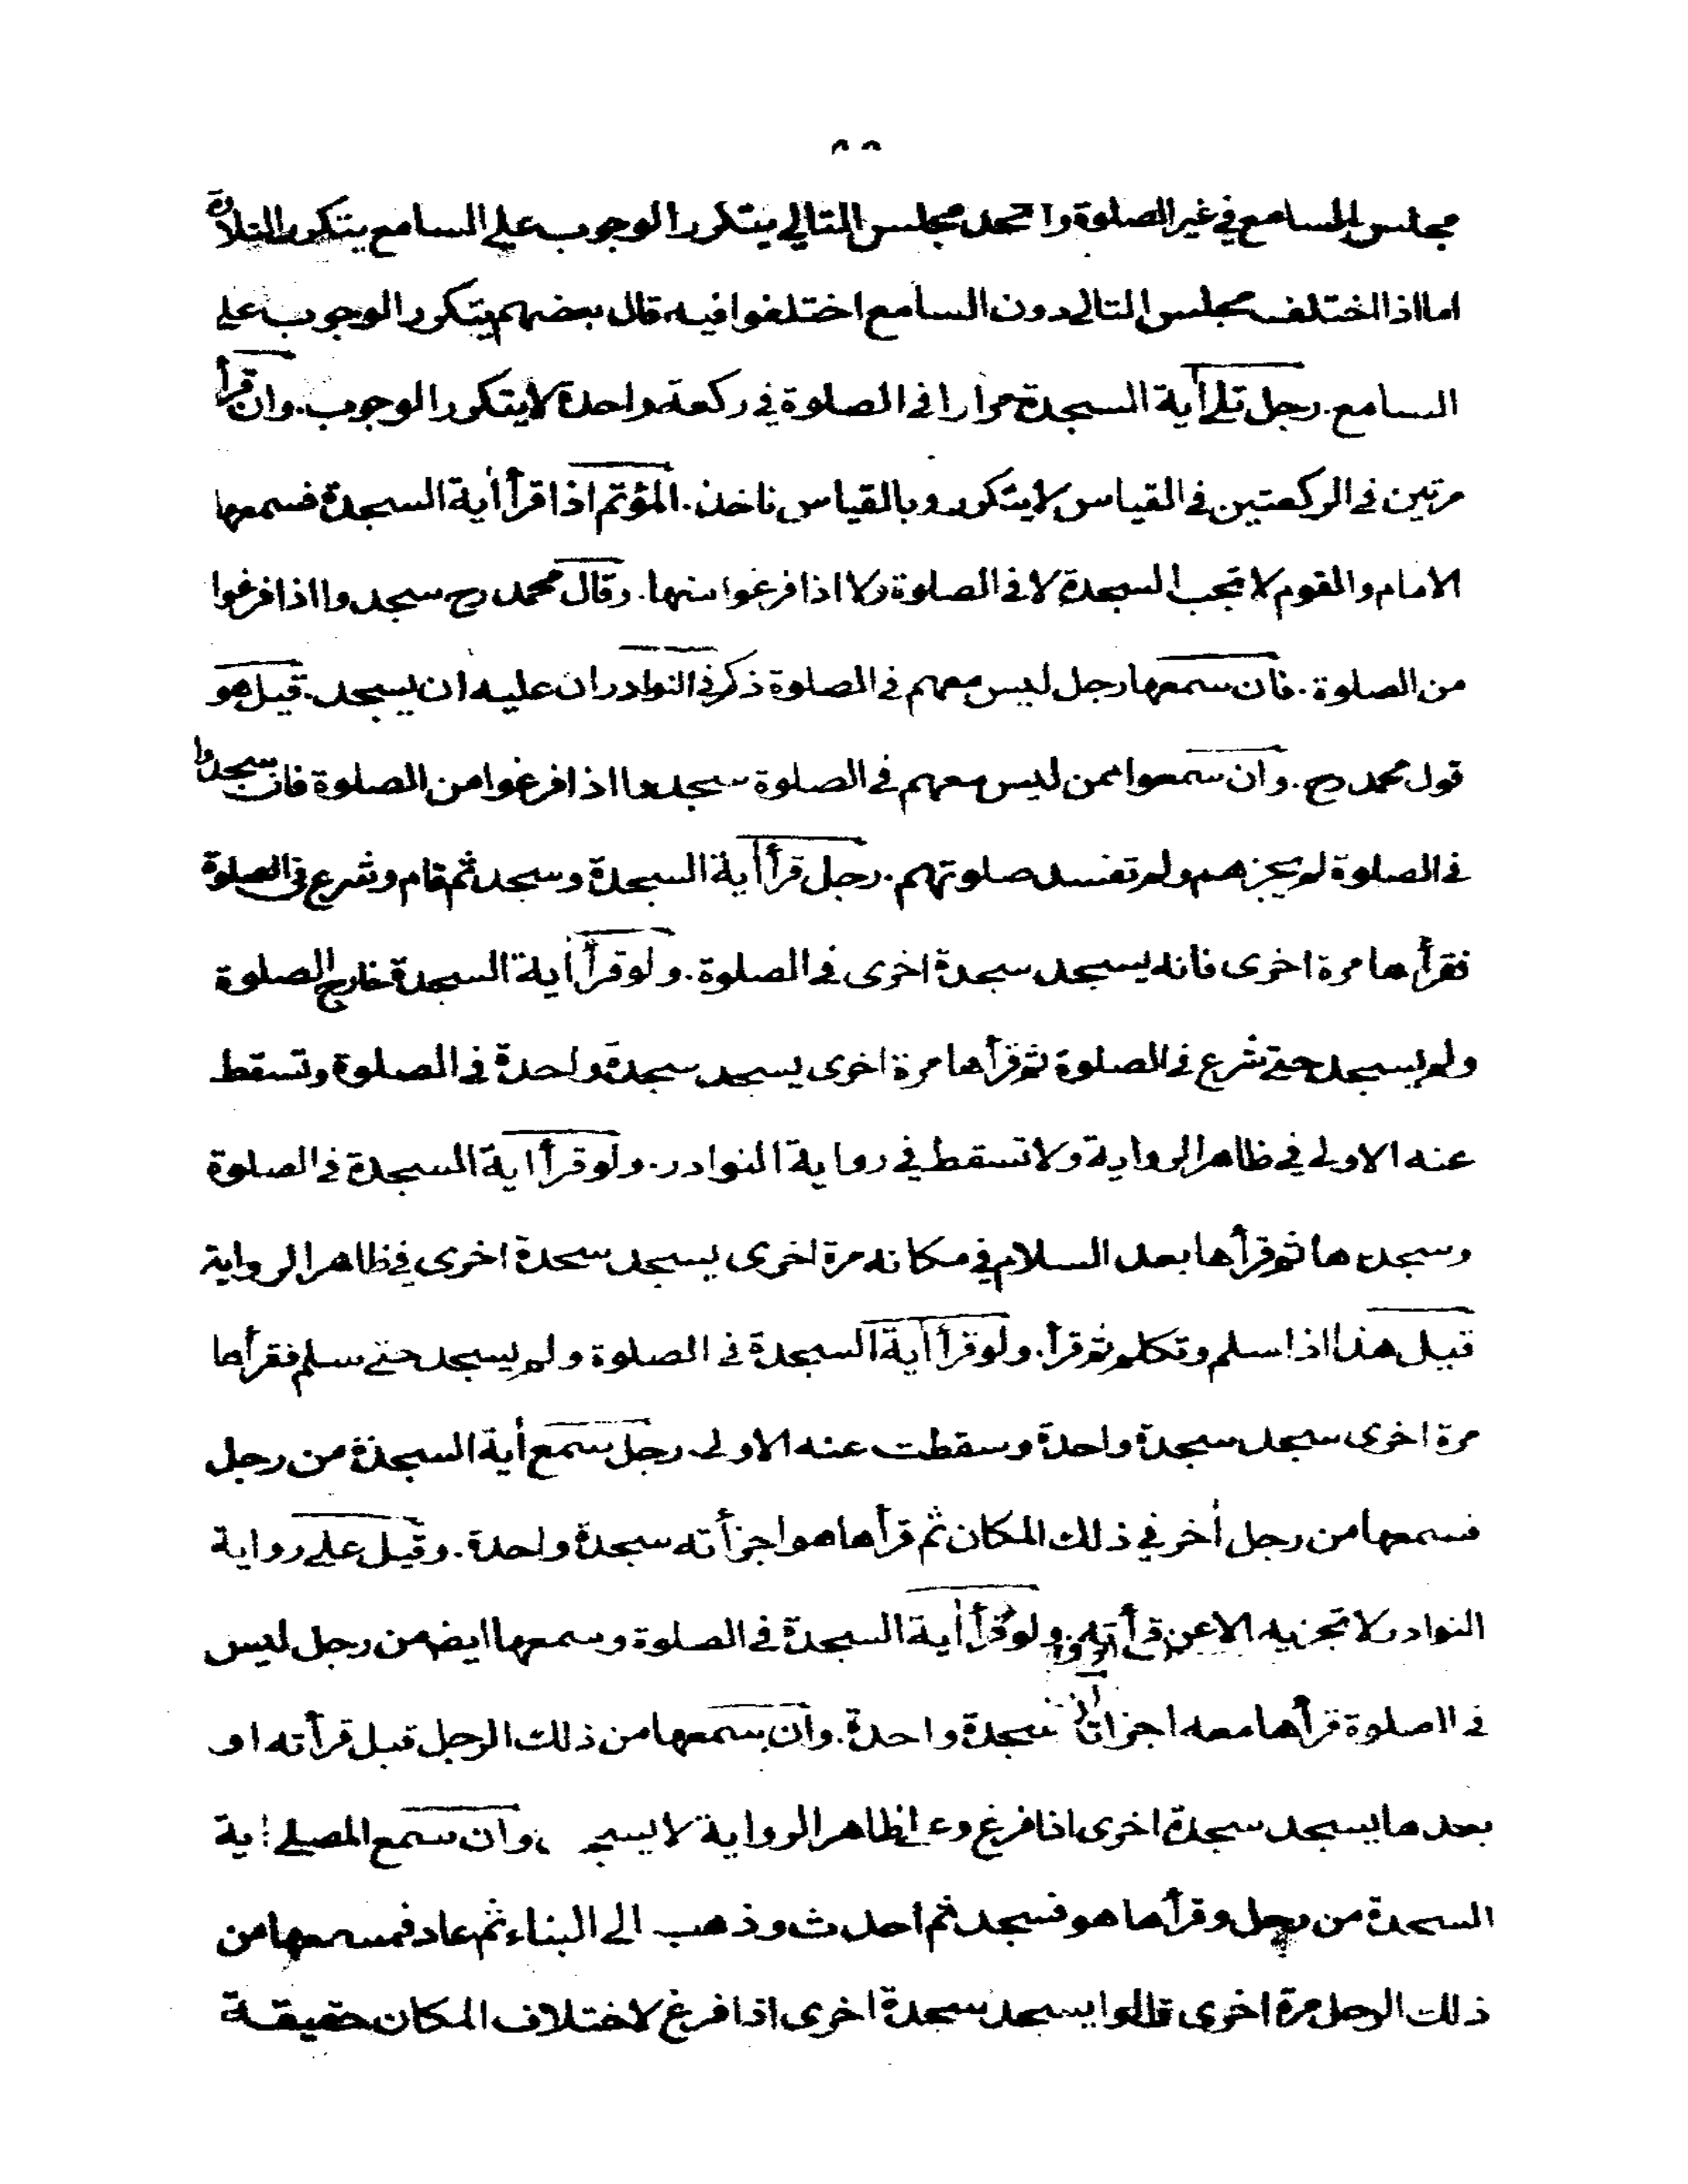 ٨٨
مجلس السامع في غير الصلوة واتحد مجلس التالي يتكرر الوجوب على السامع بتكرر التلاوة
اما اذا اختلف مجلس التالي دون السامع اختلفوا فيه قال بعضهم يتكرر الوجوب على
السامع. رجل تلا أية السجدة مرارا في الصلوة في ركعة واحدة لا يتكرر الوجوب. وان قرأ
مرتين في الركعتين في القياس لا يتكرر وبالقياس ناخذ. المؤتم اذا قرأ أية السجدة فسمعها
الامام والقوم لا تجب السجدة لا في الصلوة ولا اذا فرغوا منها. وقال محمد رح سجدوا اذا فرغوا
من الصلوة. فان سمعها رجل ليس معهم في الصلوة ذكر في النوادر ان عليه ان يسجد. قيل هو
قول محمد رح. وان سمعوا ممن ليس معهم في الصلوة سجدوا اذا فرغوا من الصلوة فان سجدوا
في الصلوة لم يجزهم ولم تفسد صلوتهم. رجل قرأ أية السجدة وسجد ثم قام وشرع في الصلوة
فقرأها مرة اخرى فانه يسجد سجدة اخرى في الصلوة. ولو قرأ أية السجدة خارج الصلوة
ولم يسجد حتى شرع في الصلوة ثم قرأها مرة اخرى يسجد سجدة واحدة في الصلوة وتسقط
عنه الاولى في ظاهر الرواية ولا تسقط في رواية النوادر. ولو قرأ اية السجدة في الصلوة
وسجدها ثم قرأها بعد السلام في مكانه مرة اخرى يسجد سجدة اخرى في ظاهر الرواية
قيل هذا اذا سلم وتكلم ثم قرأ. ولو قرأ أية السجدة في الصلوة ولم يسجد حتى سلم فقرأها
مرة اخرى سجد سجدة واحدة وسقطت عنه الاولى رجل سمع أية السجدة من رجل
فسمعها من رجل أخر في ذلك المكان ثم قرأها هو اجزأته سجدة واحدة. وقيل على رواية
النوادر لا تجزيه الا عن قرأته. ولو قرأ أية السجدة في الصلوة وسمعها ايضا من رجل ليس
في الصلوة قرأها معه اجزاته سجدة واحدة. وان سمعها من ذلك الرجل قبل قرأته او
بعدها يسجد سجدة اخرى اذا فرغ وعلى ظاهر الرواية لا يسجد. وان سمع المصلي اية
السجدة من رجل وقرأها هو فسجد ثم احدث وذهب الى البناء ثم عاد فسمعها من
ذلك الرجل مرة اخرى قالوا يسجد سجدة اخرى اذا فرغ لاختلاف المكان حقيقة